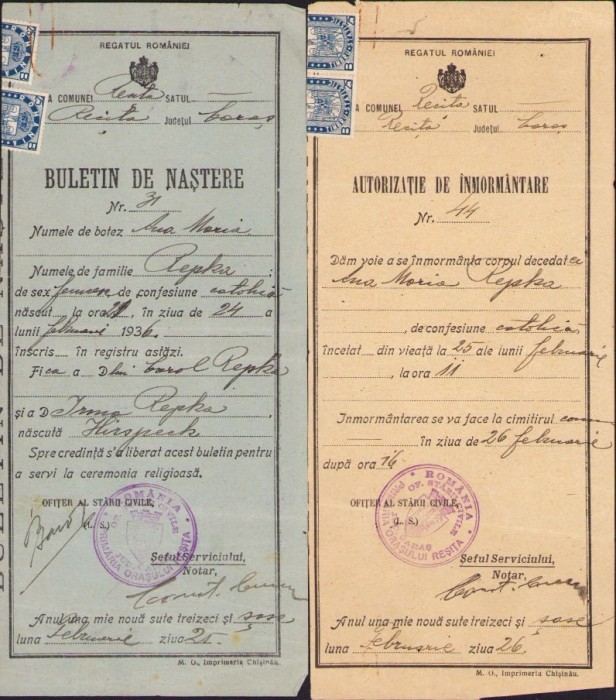 REGATUL ROMÂNIEI
A COMUNEI Recita SATUL —
Recița Județul Caraș
BULETIN DE NAȘTERE
Nr. 31
Numele de botez Ana Maria
Numele de familie Repka
de sex femeesc de confesiune catolică
născut la ora 21, în ziua de 24 a
lunii februarie 1936.
înscris în registru astăzi.
Fica a Dlui Carol Repka
și a D Irma Repka
născută Hirspeck
Spre credință s'a liberat acest buletin pentru
a servi la ceremonia religioasă.
OFIȚER AL STĂRII CIVILE,
(L. S.)
ROMÂNIA
OF. STĂRII CIVILE
JUD. CARAȘ
PRIMĂRIA ORAȘULUI REȘIȚA
Șeful Serviciului,
Notar,
Anul una mie nouă sute treizeci și șase
luna Februarie ziua 25
M. O., Imprimeria Chișinău.
REGATUL ROMÂNIEI
A COMUNEI Recița SATUL —
Recița Județul Caraș
AUTORIZAȚIE DE ÎNMORMÂNTARE
Nr. 44
Dăm voie a se înmormânta corpul decedatei
Ana Maria Repka
, de confesiune catolică
încetat din vieață la 25 ale lunii februarie
, la ora 11
Inmormântarea se va face la cimitirul
— în ziua de 26 februarie
după ora 16
OFIȚER AL STĂRII CIVILE,
(L. S.)
ROMÂNIA
OF. STĂRII CIVILE
JUD. CARAȘ
PRIMĂRIA ORAȘULUI REȘIȚA
Șeful Serviciului,
Notar,
Anul una mie nouă sute treizeci și șase
luna februarie ziua 26
M. O., Imprimeria Chișinău.